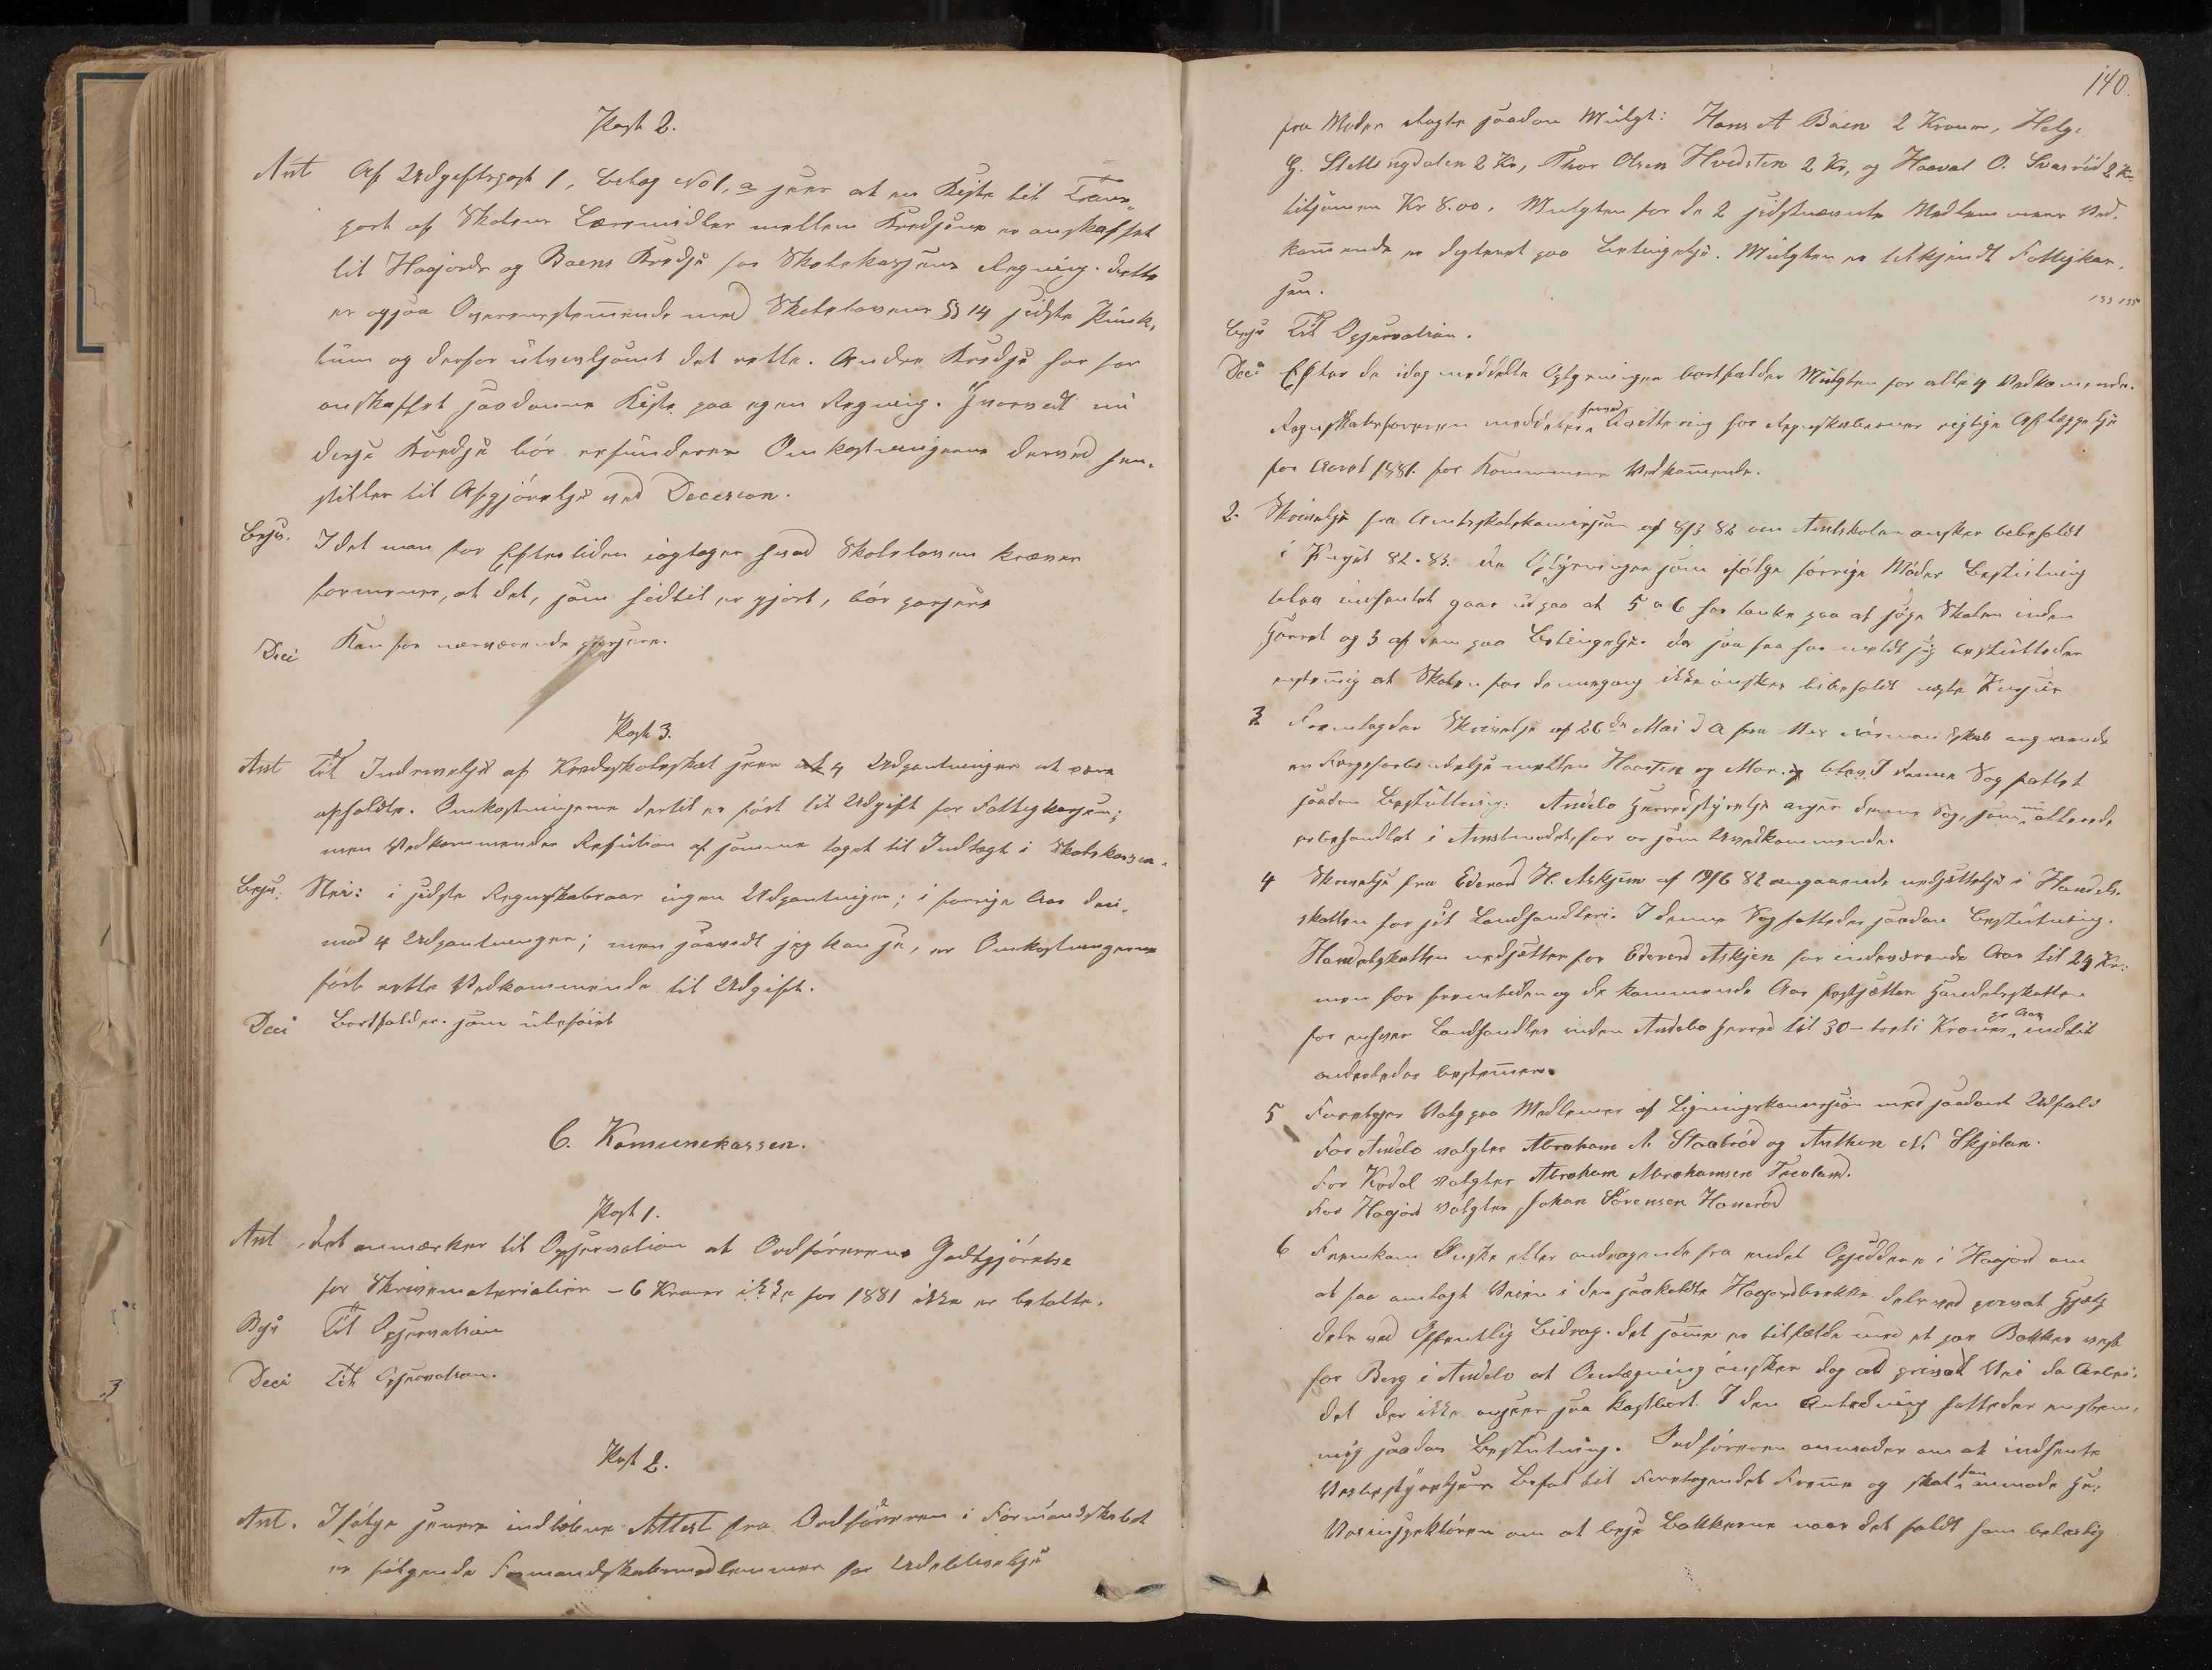 Post 2.
Ant Af Udgiftspost 1, bilag No 1, a sees at en Kiste til Trans-
port af Skolens Læremidler mellem Kredsene er anskaffet
til Haajords og Baens Kreds for Skolekassens Regning. dette
er ogsaa Overensstemende med Skolelovens § 14 sidste Punk-
tum og derfor utvivlsomt det rette. Andre Kredse har før
anskaffet saadanne Kister paa egen Regning. Hvorvidt nu
disse Kredse bør refunderes Omkostningerne derved hen-
stilles til Afgjørelse ved Decision.
Besv. Idet man for Eftertiden iagtager hvad Skoleloven kræver
formenes, at det, som hidtil er gjort, bør passere
Deci Kan for nærværende passere.
Post 3.
Ant Til Inddrivelse af Kredsskoleskat sees 4 Udpantninger at være
afholdte. Omkostningerne dertil er ført til Udgift for Fattigkassen;
men Vedkommendes Refusion af samme taget til Indtægt i Skolekassen.
Besv. Nei: i sidste Regnskabsaar ingen Udpantninger; i forrige Aar der-
mod 4 Udpantninger; men saavidt jeg kan se, er Omkostningerne
ført rette Vedkommende til Udgift.
Deci Bortfalder som ubeføiet
C. Komunekassen.
Post 1.
Ant det anmærkes til Observation at Ordførerens Godtgjørelse
for Skrivematerialier - 6 Kroner ikke for 1881 ikke er betalte.
Besv Til Observation
Deci Til Observation.
Post 2.
Ant. Ifølge senere indløbne Attest fra Ordføreren i Formandskabet
er følgende Formandskabsmedlemmer for Udeblivelse
140.
fra Møder ilagte saadan Mulgt: Hans A Baen 2 Kroner, Helge
G. Stellingdalen 2 Kr, Thor Olsen Hvidsten 2 Kr, og Haaval O. Svarrød 2 Kr.
tilsamen Kr 8.00. Mulgten for de 2 sidstnævnte Medlemmers Ved-
komende er dikteret paa betingelse. Mulgten er tilkjendt Fattigkas-
sen.
133 135
Besv Til Observation.
Deci Efter de idag meddelte Oplysninger bortfalder Mulgten for alle 4 Vedkomende.
Regnskabsføreren meddeles herved Qvittering for Regnskabernes rigtige Aflæggelse
for Aaret 1881 for Kommunens Vedkomende.
2. Skrivelse fra Amtsskolekomission af 8/3 82 om Amtskolen ønskes bibeholdt
i Kurset 82-83. de Oplysninger som ifølge forrige Møders Beslutning
blev indhentet gaar ud paa at 5 a 6 har tanke paa at søge Skolen inden
Herret og 3 af dem paa Betingelse. da saa faa har meldt sig besluttedes
enstemig at Skolen for denne gang ikke ønskes bibeholdt neste Kursus
3 Fremlagdes Skrivelse af 26de Mai d A fra Nes Formandskab angaaende
en Færgeforbindelse mellem Haasten og Mor. blev. I denne Sag fattet
saadan Beslutning: Andebo Herredstyrelse anser denne Sag, som nu allerede
er behandlet i Amtsmødet, for os som Uvedkommende.
4 Skrivelse fra Edevard H. Askjem af 19/6 82 angaaende nedsættelse i Handels-
skatten for sit Landhandleri. I denne Sag fattedes saadan Beslutning.
Handelsskatten nedsættes for Edevard Askjem for indeværende Aar til 24 Kr:
men for fremtiden og de kommende Aar fastsættes Handelsskatten
for enhver Landhandler inden Andebo Herred til 30 - treti Kroner pr Aar indtil
anderledes bestemes.
5 Foretoges Valg paa Medlemer af Ligningskomission med saadant Udfald
For Andebo valgtes Abraham A. Staabrød og Anthon N. Skjelan.
For Kodal valgtes Abraham Abrahamsen Trevland.
For Høijord valgtes Johan Sørensen Hanerød
6 Fremkom Ønske eller andragende fra endel Opsiddere i Haajord om
at faa omlagt Veien i den saakaldte Haajordbakke dels ved privat Hjælp
dels ved Offentlig Bidrag. det same er tilfælde med et par Bakker vest
for Berg i Andebo at Omlægning ønskes dog ad privat Vei da Arbei-
det der ikke ansees saa kostbart. I den Anledning fattedes enstem-
mig saadan Beslutning. Ordføreren anmodes om at indhente
Veibestyrelsens Befal til Foretagendets Freme og skal han anmode Hr.
Veiinspektøren om at bese Bakkerne naar det faldt ham beleilig